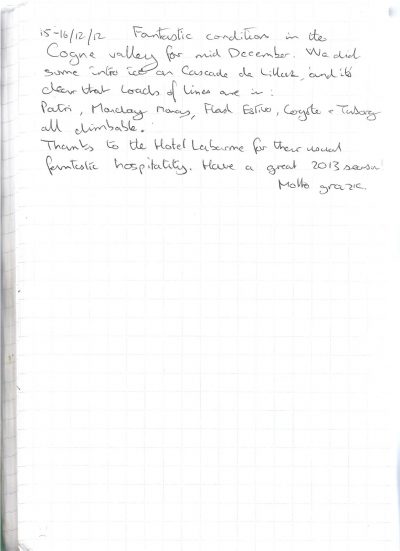 15-16/12/12 Fantastic condition in the
Cogne valley for mid December. We did
some intro ice on Cascade de Lillaz, and it's
clear that loads of lines are in:
Patri, Monday Money, Flash Estivo, Coyote + Tuborg
all climbable.
Thanks to the Hotel Labarme for their usual
fantastic hospitality. Have a great 2013 season!
Molto grazie.